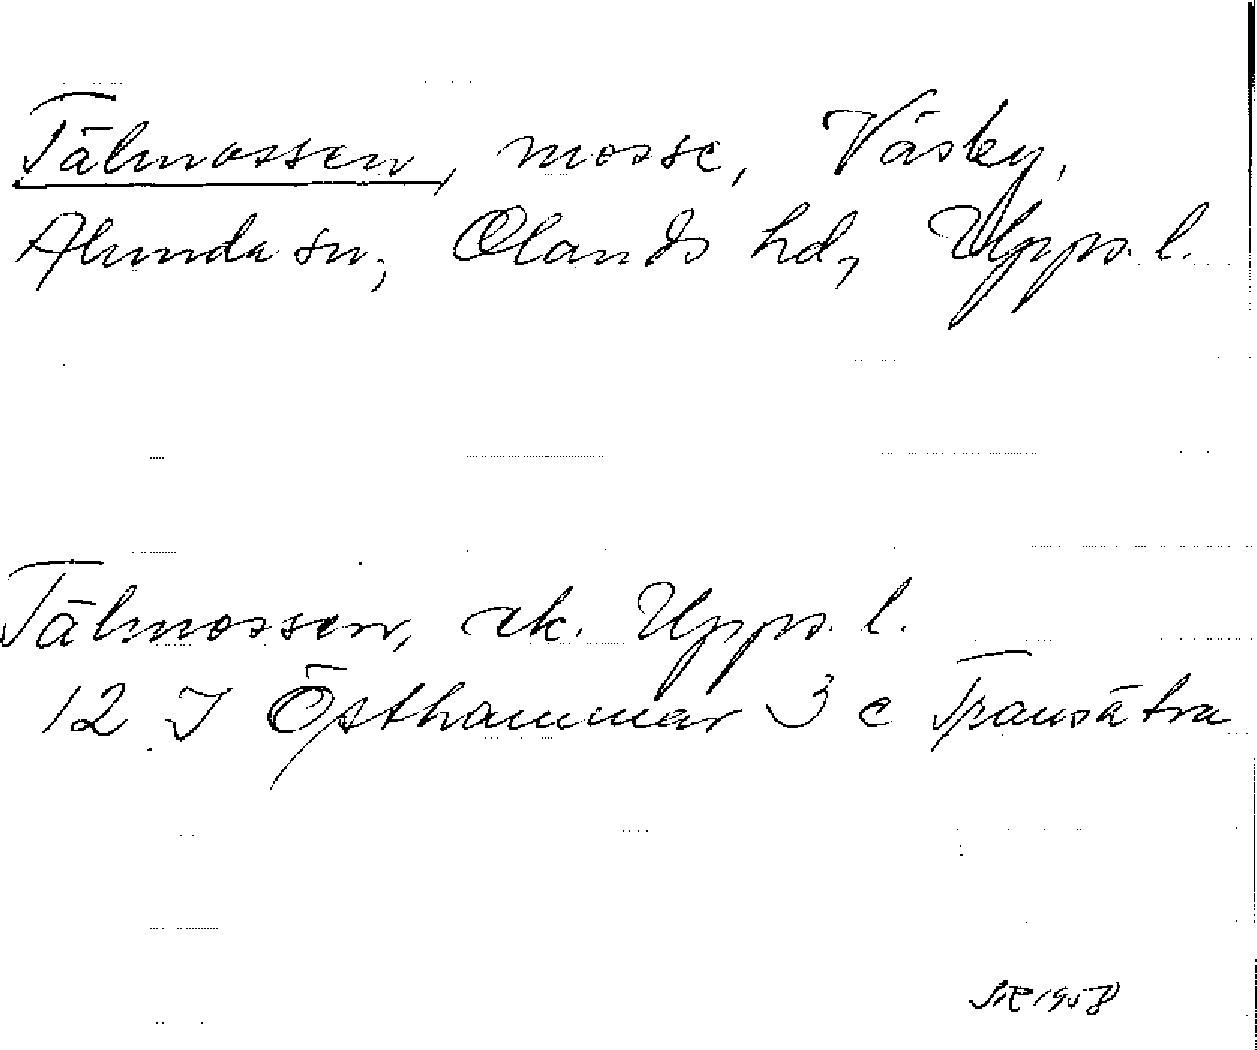 Tälmossen, mosse, Väsby,
Alunda sn, Olands hd, Upps. l.
Tälmossen, ek. Upps. l.
12 I Östhammar 3 c Pransätra
1958